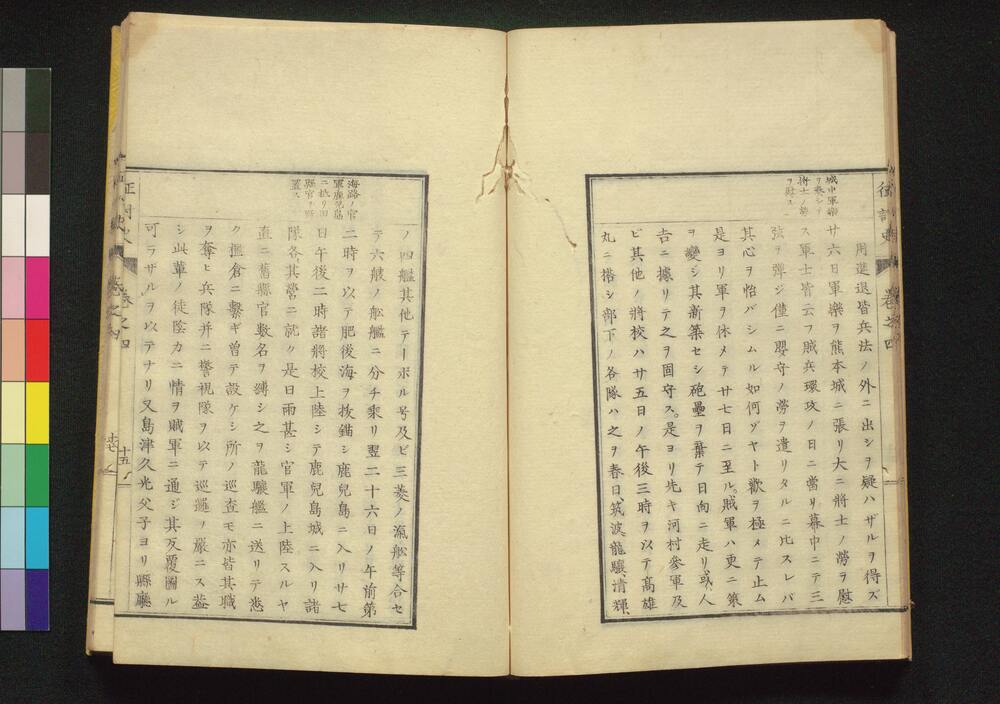 征討史
卷之四
城中軍樂
ヲ奏シテ
將士ノ勞
ヲ慰ス
用進退皆兵法ノ外ニ出シヲ疑ハザルヲ得ズ
廿六日軍樂ヲ熊本城ニ張リ大ニ將士ノ勞ヲ慰
ス軍士皆云フ賊兵環攻ノ日ニ當リ幕中ニテ三
弦ヲ彈ジ僅ニ嬰守ノ滂ヲ遣リタルニ比スレバ
其心ヲ怡バシムル如何ゾヤト歡ヲ極メテ止ム
是ヨリ軍ヲ休メテ廿七日ニ至ル。賊軍ハ更ニ策
ヲ變シ其新築セシ砲壘ヲ棄テ日向ニ走リ、或人
吉ニ據リテ之ヲ固守ス。是ヨリ先キ河村參軍及
ビ其他ノ將校ハ廿五日ノ午後三時ヲ以テ高雄
丸ニ搭シ部下ノ各隊ハ之ヲ春日、筑波、龍驤、清輝、
海路ノ官
軍鹿兒島
ニ抵リ旧
縣官ヲ
置ス
ノ四艦其他テーボル号及ビ三菱ノ滊舩等合セ
テ六艘ノ舩艦ニ分チ乘リ翌二十六日ノ午前第
二時ヲ以テ肥後海ヲ拔錨シ鹿兒島ニ入リ廿七
日午後二時諸將校上陸シテ鹿兒島城ニ入リ諸
隊各、其營ニ就ク是日雨甚シ官軍ノ上陸スルヤ
直ニ舊縣官數名ヲ縛シ之ヲ龍驤艦ニ送リテ悉
ク艦倉ニ繫ギ曾テ設ケシ所ノ巡査モ亦皆其職
ヲ奪ヒ兵隊并ニ警視隊ヲ以テ巡邏ノ嚴ニス蓋
シ此輩ノ徒陰カニ情ヲ賊軍ニ通ジ其反覆圖ル
可ラザルヲ以テナリ又島津久光父子ヨリ縣廳
卷之四
十五